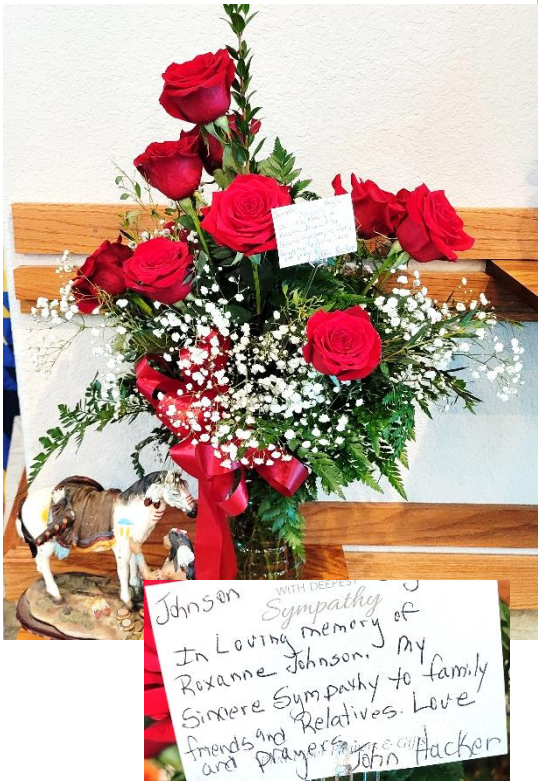 Johnson
WITH DEEPEST
Sympathy
In Loving memory of
Roxanne Johnson. My
Sincere Sympathy to family
friends and Relatives. Love
and prayers John Hacker